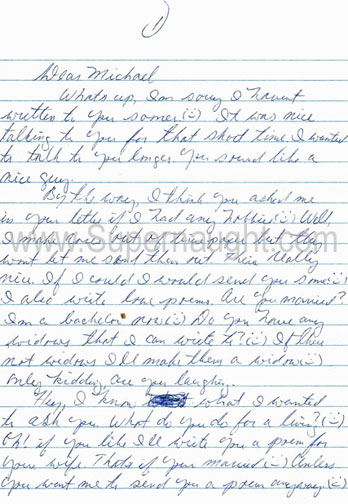 1
Dear Michael
Whats up, I'm sorry I havent
written to you sooner (:) It was nice
talking to you for that short time. I wanted
to talk to you longer. You sound like a
nice guy.
By the way, I think you asked me
in your letter if I had any hobbies (:) Well
I make out of but they
www.Supernaught.com
wont let me send them out. Their really
nice. If I could I would send you some (:)
I also write love poems. Are you married?
I'm a bachelor now (:) Do you have any
widows that I can write to? (:) If their
not widows I'll make them a widow (:)
Only kidding, are you laughing.
Hey, I know what I wanted
to ask you. What do you do for a living? (:)
Oh! if you like I'll write you a poem for
your wife. Thats if your married (:) Unless
you want me to send you a poem anyway (:)